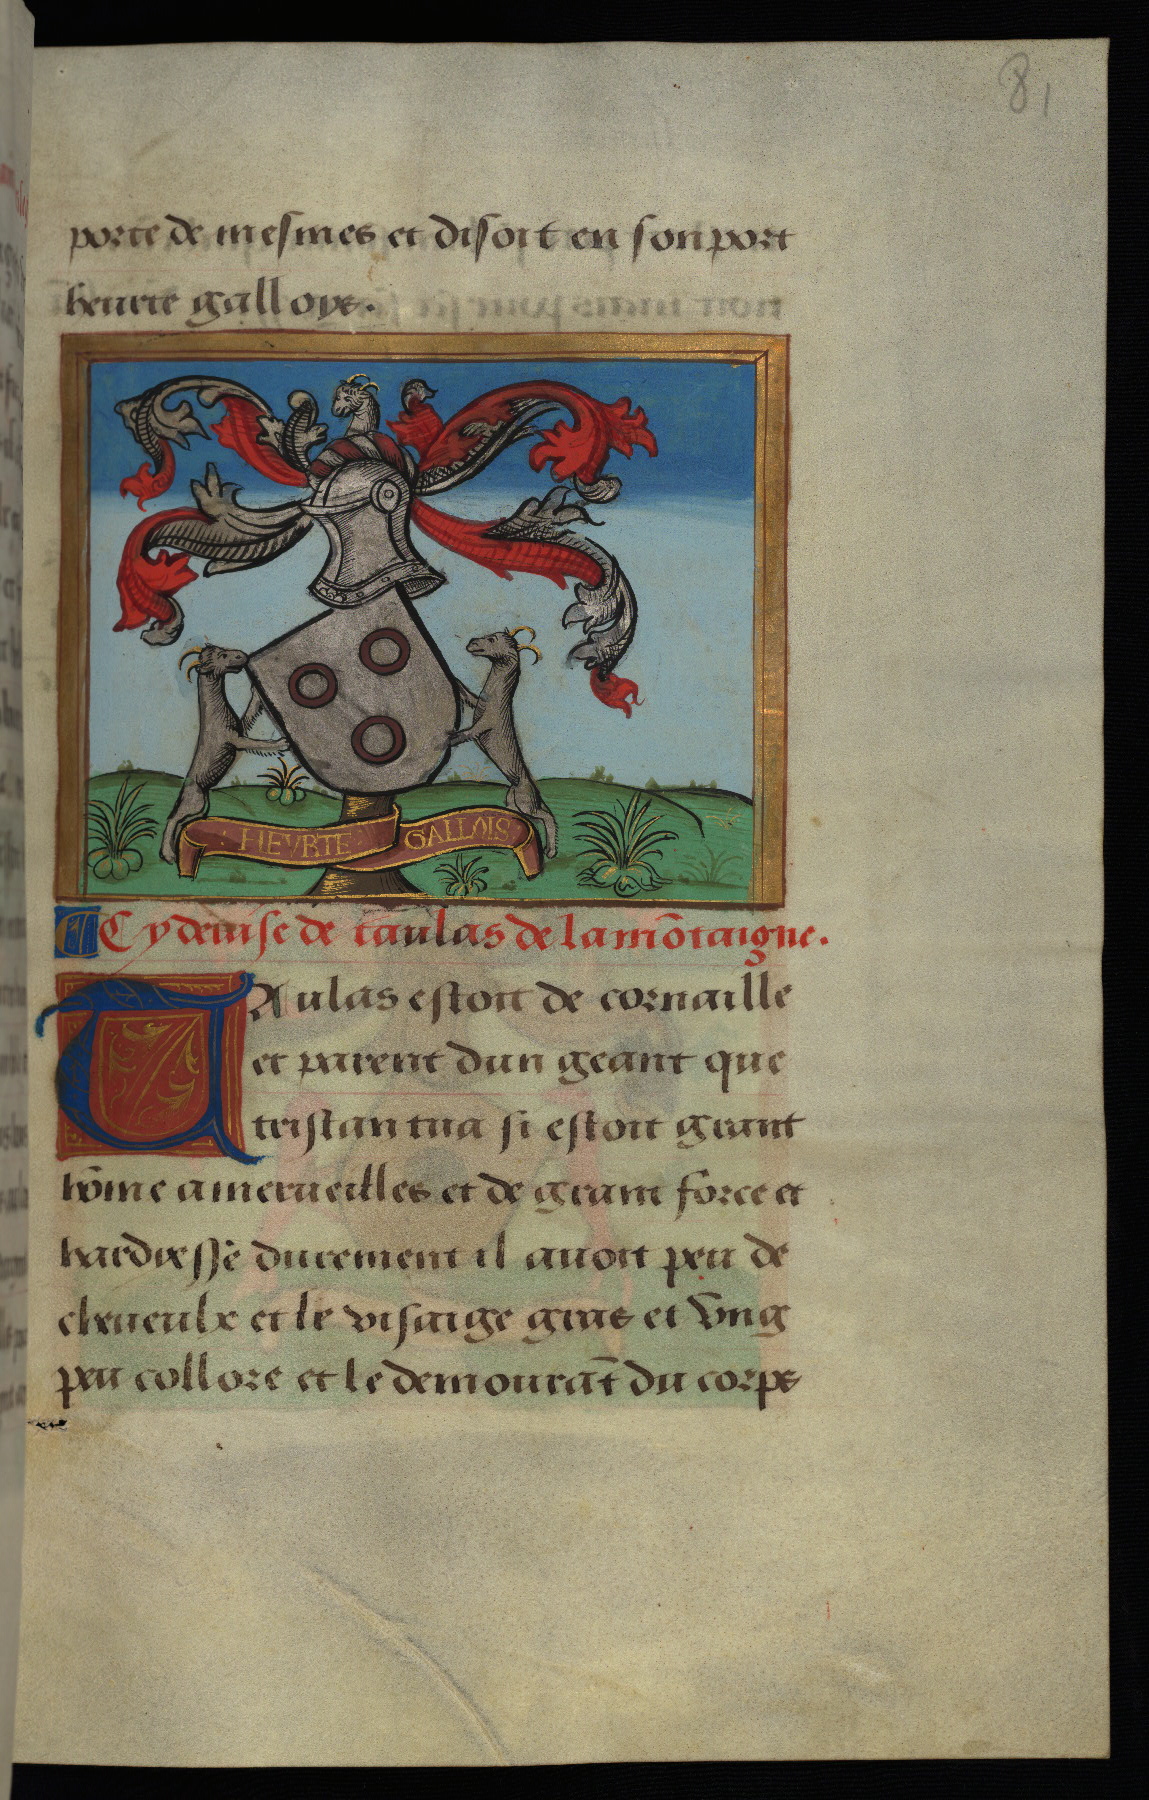 81
porte de mesmes et disoit en son port
heurte galloys.
HEVRTE GALLOIS
Cy deuise de taulas de la mōtaigne.
TAulas estoit de cornaille
et parent dun geant que
tristan tua si estoit grant
hōme a merueilles et de grant force et
hardiesse durement il auoit peu de
cheueulx et le visaige gras et vng
peu collore et le demourāt du corps